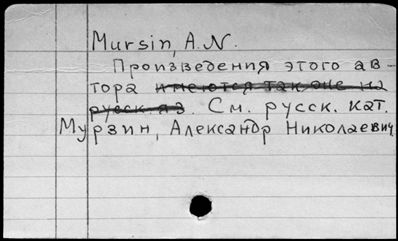 Mursin, A.N.
Произведения этого ав-
тора имеются также на
русск. яз. См. русск. кат.
Мурзин, Александр Николаевич.